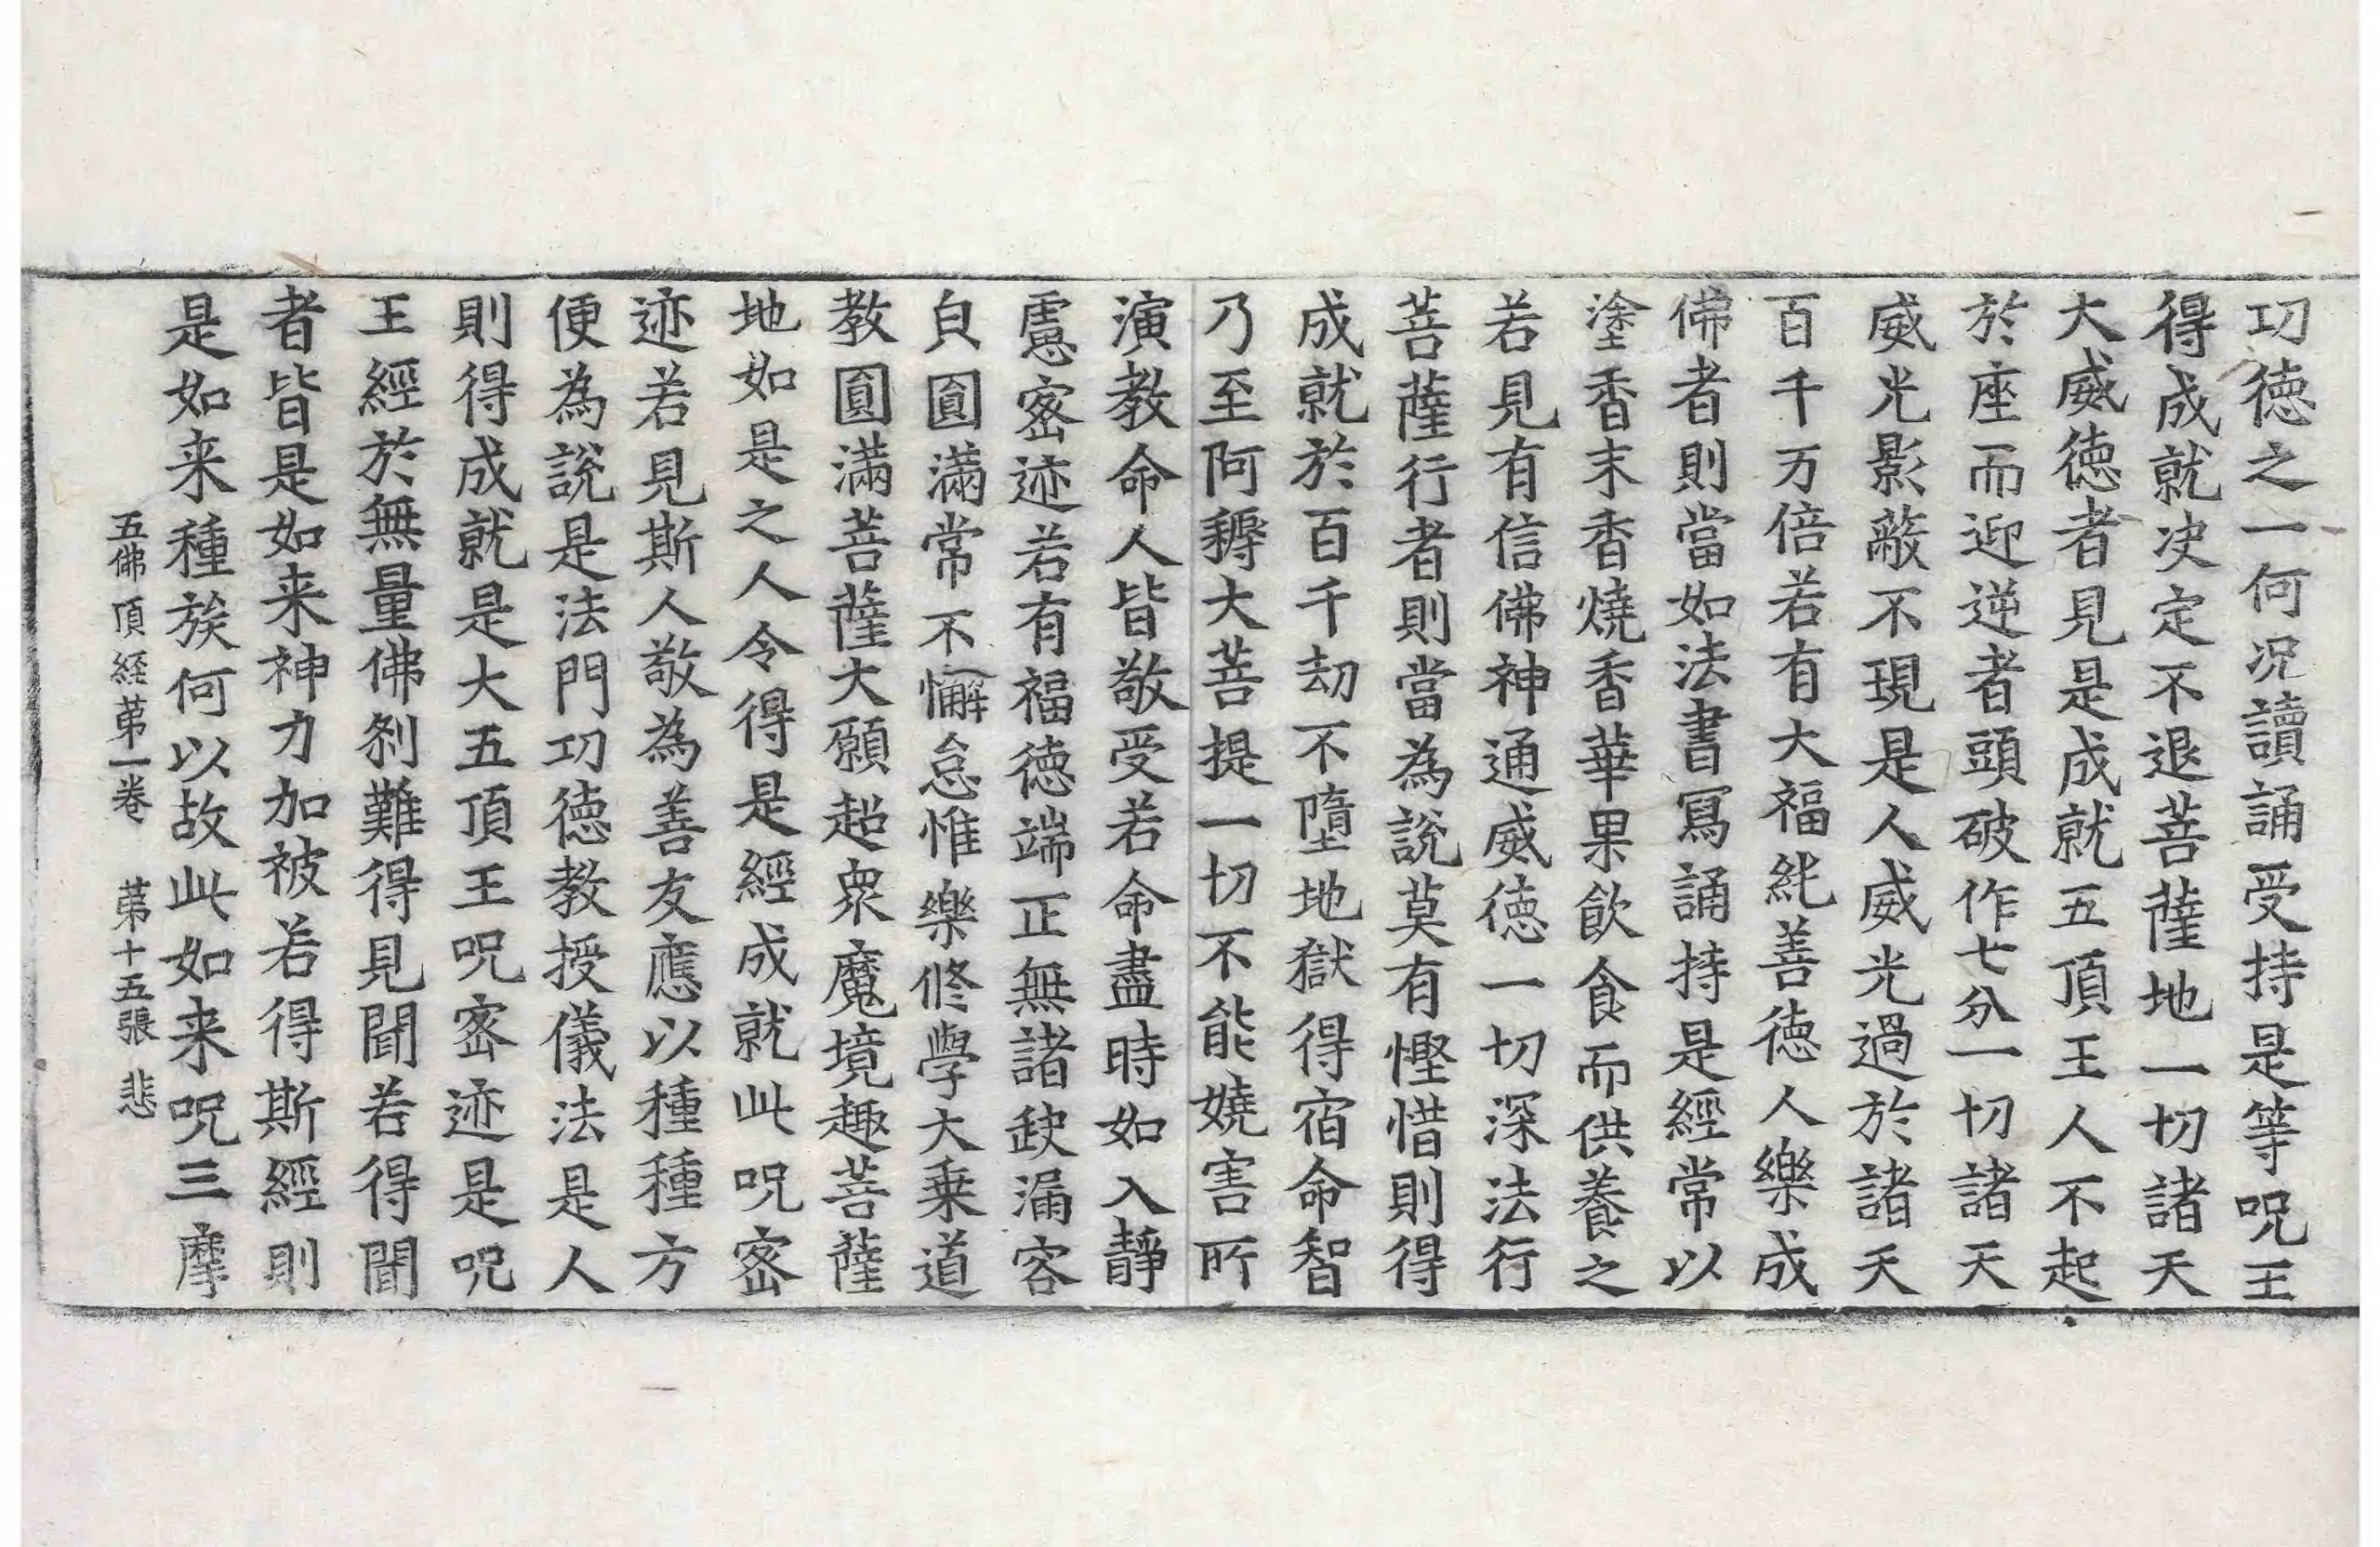 功徳之一何况讀誦受持是等呪王
得成就决定不退菩薩地一切諸天
大威徳者見是成就五頂王人不起
於座而迎逆者頭破作七分一切諸天
威光影蔽不現是人威光過於諸天
百千万倍若有大福純善徳人樂成
佛者則當如法書寫誦持是經常以
塗香末香燒香華果飲食而供養之
若見有信佛神通威徳一切深法行
菩薩行者則當為說莫有慳惜則得
成就於百千劫不墮地獄得宿命智
乃至阿耨大菩提一切不能嬈害所
演教命人皆敬受若命盡時如入靜
慮密迹若有福徳端正無諸缺漏容
白圓滿常不懈怠惟樂修學大乗道
教圓滿菩薩大願超衆魔境趣菩薩
地如是之人令得是經成就此呪密
迹若見斯人敬為善友應以種種方
便為說是法門功徳教授儀法是人
則得成就是大五頂王呪密迹是呪
王經於無量佛刹難得見聞若得聞
者皆是如来神力加被若得斯經則
是如来種族何以故此如来呪三摩
五佛頂経苐一卷 苐十五張 悲